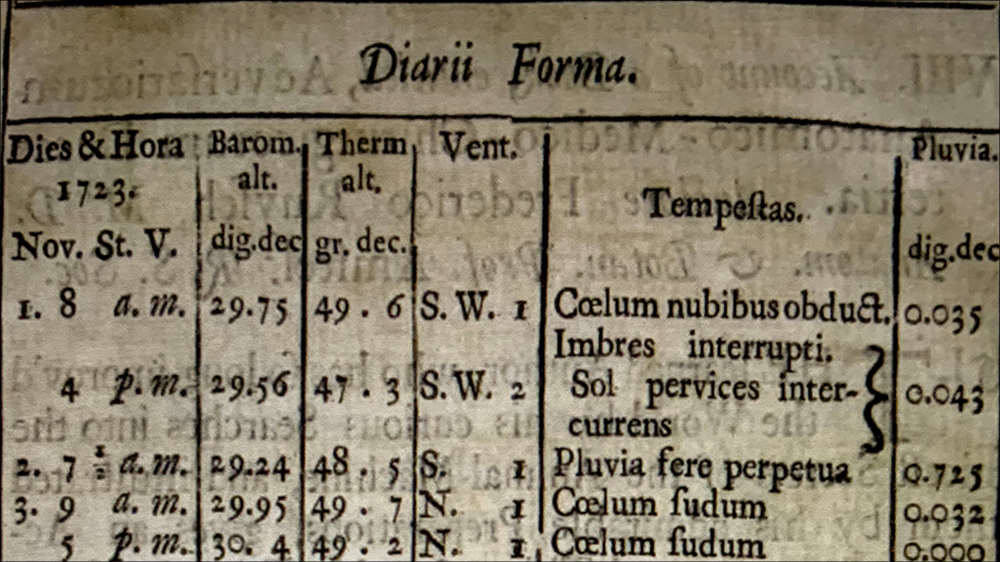 Diarii Forma.
Dies & Hora Barom. Therm Vent. Pluvia.
1723. alt. alt. Tempeſtas.
Nov. St. V. dig.dec gr. dec. dig.dec
1. 8 a. m. 29.75 49 . 6 S. W. 1 Cœlum nubibus obduct. 0.035
Imbres interrupti.
4 p. m. 29.56 47 . 3 S. W. 2 Sol pervices inter- 0.043
currens
2. 7 ½ a. m. 29.24 48 . 5 S. 1 Pluvia fere perpetua 0.725
3. 9 a. m. 29.95 49 . 7 N. 1 Cœlum ſudum 0.032
5 p. m. 30. 4 49 . 2 N. 1 Cœlum ſudum 0.000